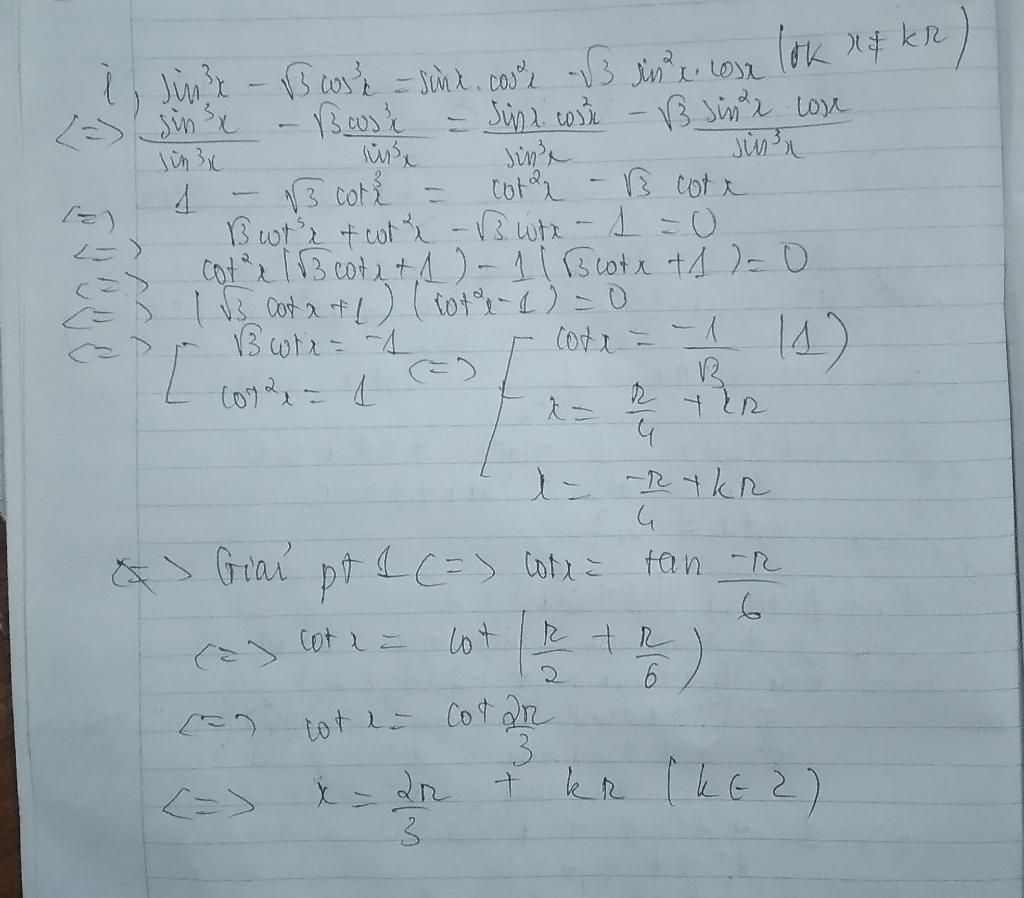 i, sin³x - √3 cos³x = sinx.cos²x - √3 sin²x.cosx (đk x ≠ kπ)
<=> sin³x/sin³x - √3 cos³x/sin³x = sinx.cos²x/sin³x - √3 sin²x.cosx/sin³x
<=> 1 - √3 cot³x = cot²x - √3 cotx
<=> √3 cot³x + cot²x - √3 cotx - 1 = 0
<=> cot²x (√3 cotx + 1) - 1 (√3 cotx + 1) = 0
<=> (√3 cotx + 1) (cot²x - 1) = 0
<=> [ √3 cotx = -1 <=> [ cotx = -1/√3 (1)
cot²x = 1 x = π/4 + kπ
x = -π/4 + kπ
<=> Giải pt 1 <=> cotx = tan -π/6
<=> cotx = cot (π/2 + π/6)
<=> cotx = cot 2π/3
<=> x = 2π/3 + kπ (k ∈ Z)